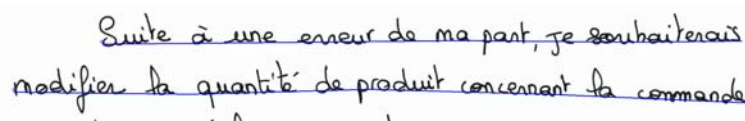 Suite à une erreur de ma part, je souhaiterais
modifier la quantité de produit concernant la commande